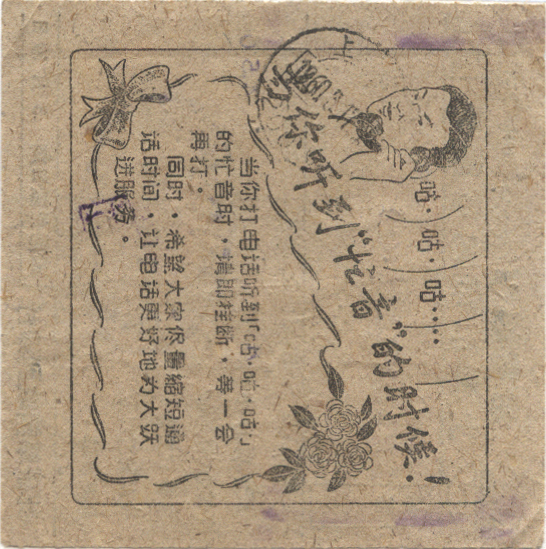 咕·咕·咕……
当你听到“忙音”的时候！
当你打电话听到「咕·咕·咕」
的忙音时，请即挂断，等一会
再打。
同时，希望大家侭量缩短通
话时间，让电话更好地为大跃
进服务。